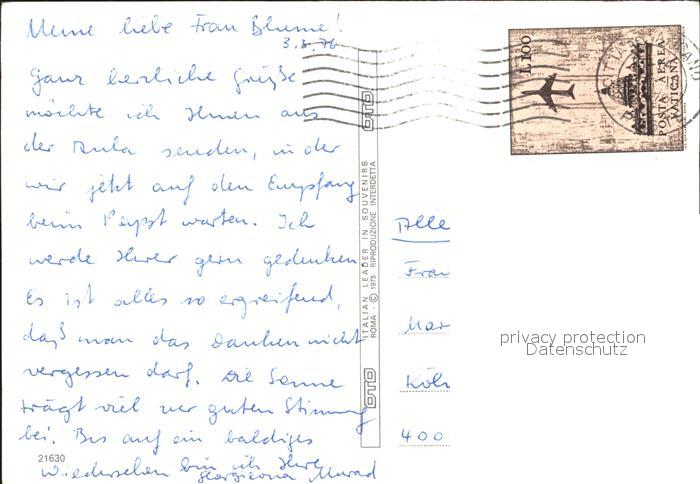 Meine liebe Frau Blume!
3.3.76
Ganz herzliche Grüße
möchte ich Ihnen aus
der Aula senden, in der
wir jetzt auf den Empfang
beim Papst warten. Ich
werde Ihrer gern gedenken.
Es ist alles so ergreifend,
daß man das Danken nicht
vergessen darf. Die Sonne
trägt viel zur guten Stimmung
bei. Bis auf ein baldiges
Wiedersehen bin ich Ihre
21630
OTO
ITALIAN LEADER IN SOUVENIRS
ROMA - © 1975 RIPRODUZIONE INTERDETTA
OTO
L.100
POSTA AEREA
VATICANA
Alle
Frau
Mar
Köln
400
privacy protection
Datenschutz